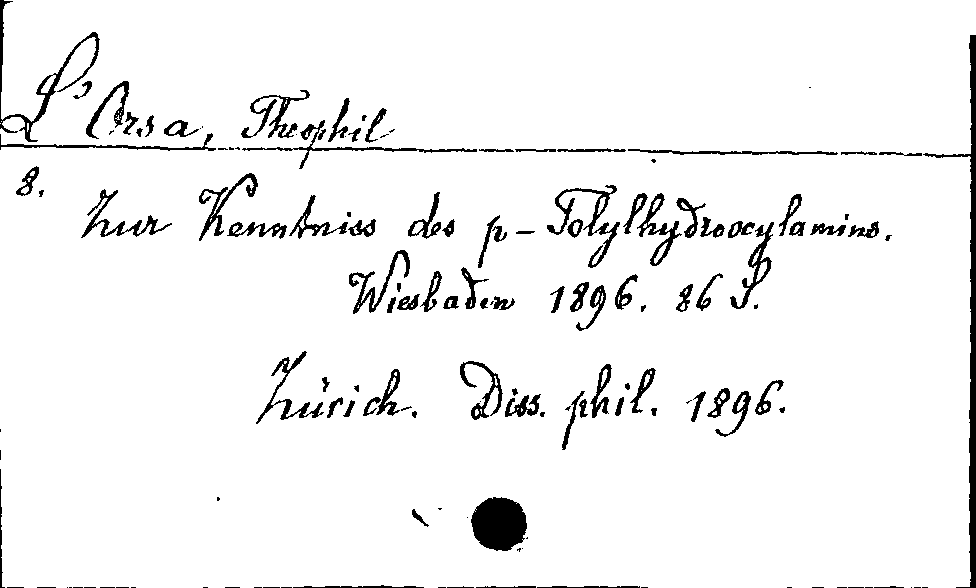 L'Orsa, Theophil
8.
Zur Kenntniss des p-Tolylhydroxylamins.
Wiesbaden 1896. 86 S.
Zürich. Diss. phil. 1896.